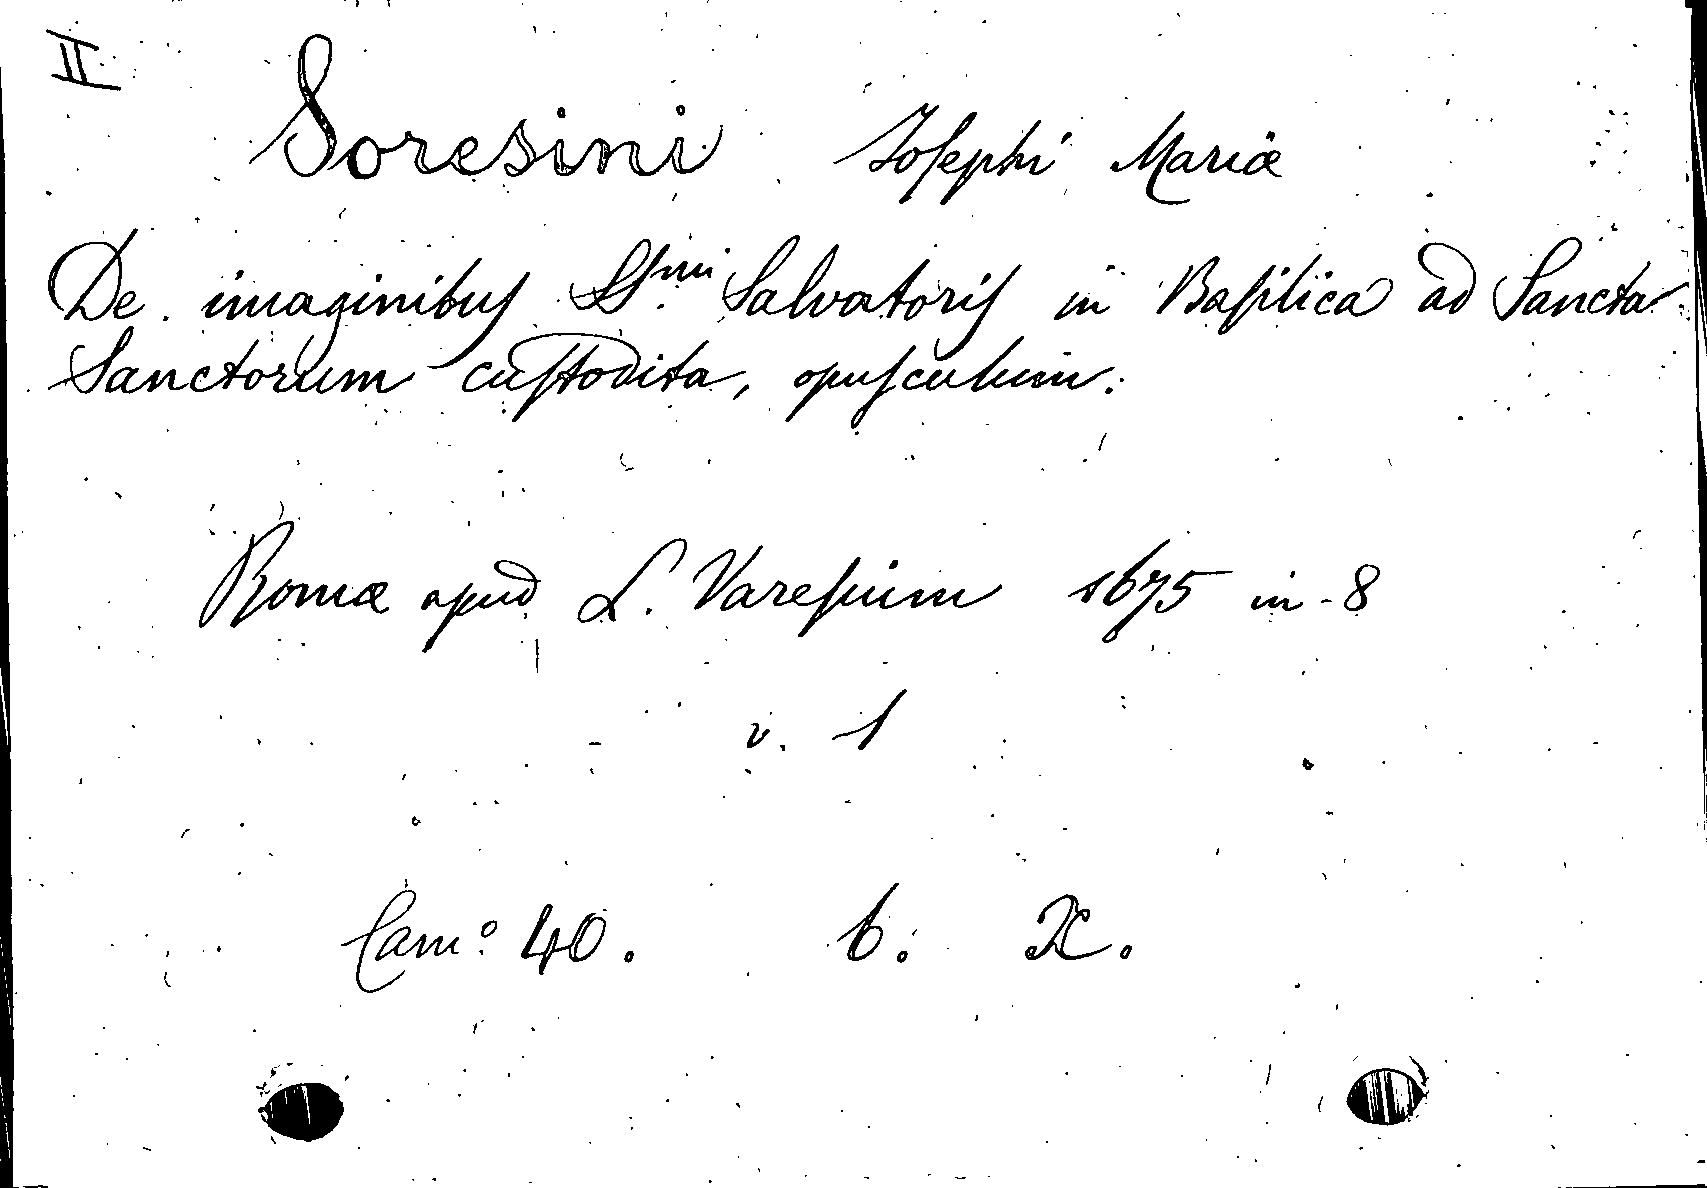 II
Soresini Josephi Mariæ
De imaginibus SSmi Salvatoris in Basilica ad Sancta
Sanctorum custodita, opusculum.
Romæ apud L. Varesium 1675 in-8
v. 1
Cam.º 40. b. X.